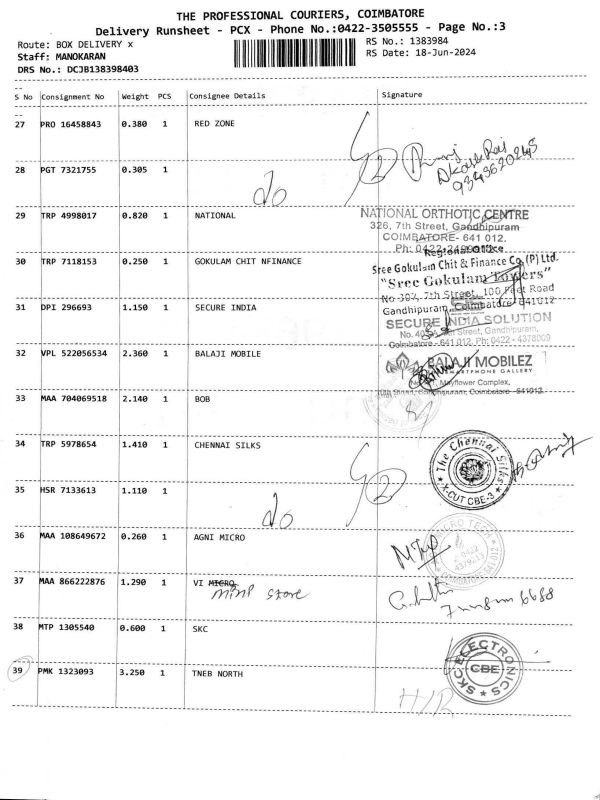 THE PROFESSIONAL COURIERS, COIMBATORE
Delivery Runsheet - PCX - Phone No.:0422-3505555 - Page No.:3
Route: BOX DELIVERY x
RS No.: 1383984
Staff: MANOKARAN
RS Date: 18-Jun-2024
DRS No.: DCJB138398403
S No Consignment No Weight PCS Consignee Details Signature
27 PRO 16458843 0.380 1 RED ZONE
28 PGT 7321755 0.305 1 do
29 TRP 4998017 0.820 1 NATIONAL
NATIONAL ORTHOTIC CENTRE
326, 7th Street, Gandhipuram
COIMBATORE- 641 012.
30 TRP 7118153 0.250 1 GOKULAM CHIT NFINANCE
Regional Office
Sree Gokulam Chit & Finance Co.(P) Ltd.
"Sree Gokulam Towers"
No 303, 7th Street, 100 Feet Road
Gandhipuram, Coimbatore - 641012
31 DPI 296693 1.150 1 SECURE INDIA
SECURE INDIA SOLUTION
Street, Gandhipuram,
Coimbatore - 641 012. Ph: 0422 - 4378009
32 VPL 522056534 2.360 1 BALAJI MOBILE
BALAJI MOBILEZ
SMARTPHONE GALLERY
Mayflower Complex,
Gandhipuram, Coimbatore - 641012.
33 MAA 704069518 2.140 1 BOB
34 TRP 5978654 1.410 1 CHENNAI SILKS
The Chennai Silks
X-CUT CBE-3
35 HSR 7133613 1.110 1 do
36 MAA 108649672 0.260 1 AGNI MICRO
37 MAA 866222876 1.290 1 VI MICRO
mini store
38 MTP 1305540 0.600 1 SKC
SKC ELECTRONICS
CBE
39 PMK 1323093 3.250 1 TNEB NORTH
H/R